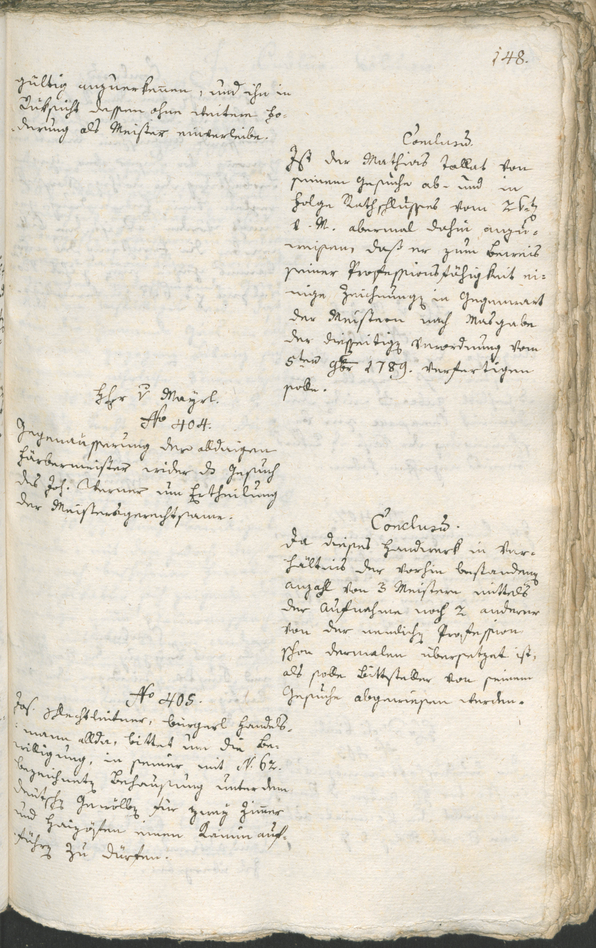 148.
gültig anzuerkennen, und ihn in
Rüksicht dessen ohne weitere Fo-
derung als Meister einverleibe.
Conclusum.
Ist der Mathias Tallat von
seinem Gesuche ab- und in
Folge Rathschlusses vom 26ten
v. M. abermal dahin anzu-
weisen, daß er zum Beweis
seiner Professionsfähigkeit ei-
nige Zeichnungen in Gegenwart
der Meistern nach Maßgabe
der diesseitigen Verordnung vom
5ten 9ber 1789. verfertigen
solle.
Hhr v Mayrl.
No 404.
Gegenäusserung der alldaigen
Färbermeister wider das Gesuch
des Joh. Werner um Ertheilung
der Meistersgerechtsame.
Conclusum.
Da dieses Handwerk in Ver-
hältniß der vorhin bestandenen
Anzahl von 3 Meistern mittels
der Aufnahme noch 2 anderer
von der nemlichen Profession
schon dermalen übersetzet ist,
als solle Bittsteller von seinem
Gesuche abgewiesen werden.
No 405.
Jos. Knechtleitner, bürgerl Handels-
mann allda, bittet um die Be-
willigung, in seiner mit N. 62.
bezeichneten Behausung unter dem
deutschen Gewölben für zwey Zimmer
und Heizöfen einen Kamin auf-
führen zu dürfen.